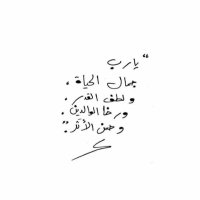 "يارب
جمال الحياة،
ولطف القدر،
ورضا الوالدين،
وحسن الأثر"